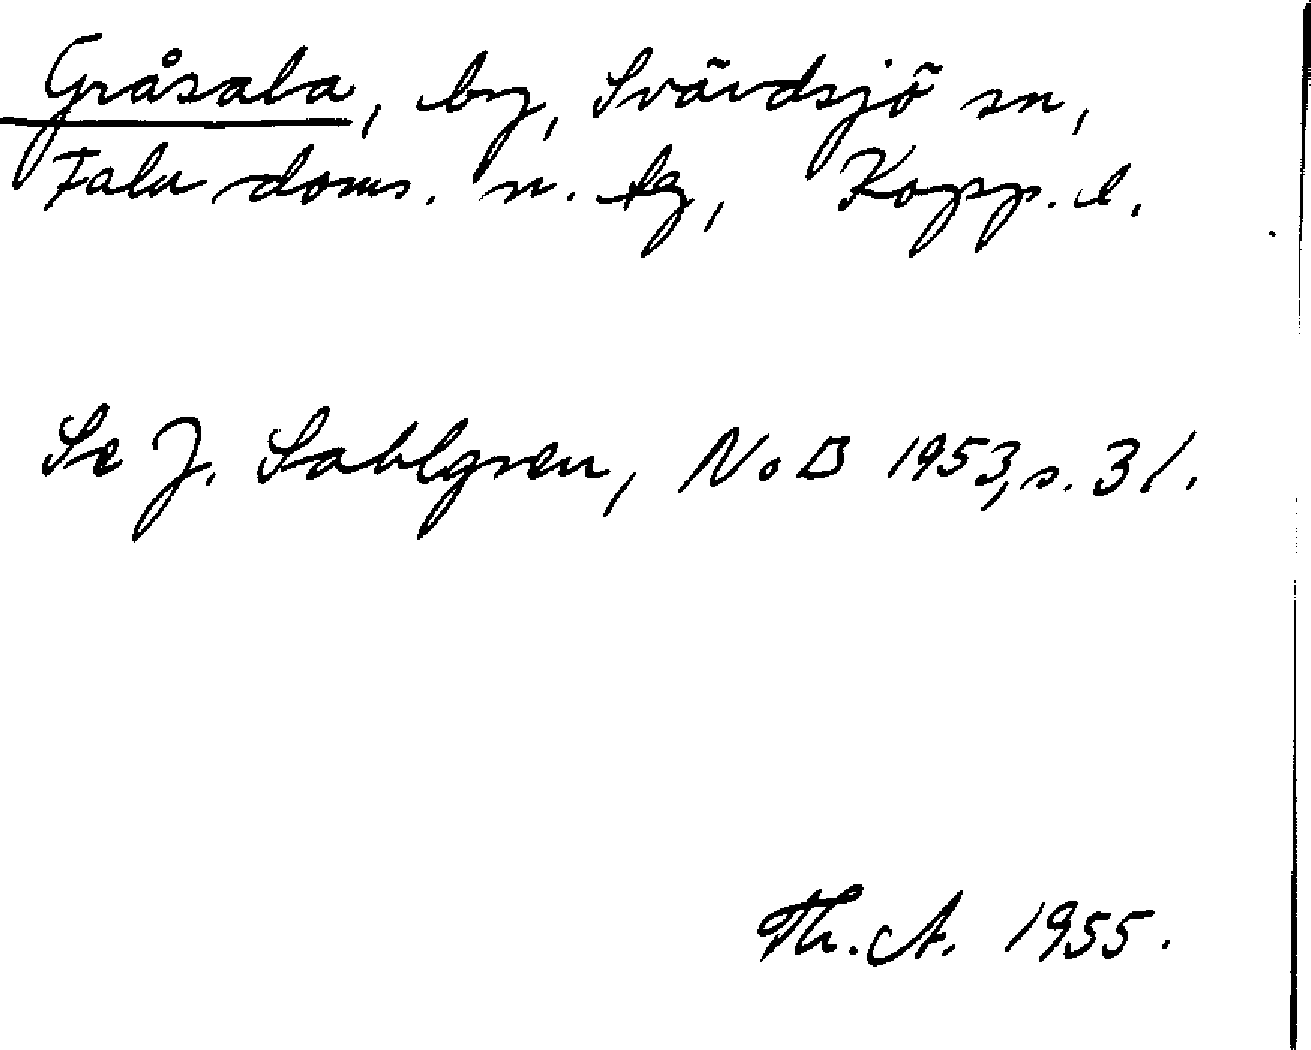 Gråsala, by, Svärdsjö sn,
Falu doms. n. tg, Kopp. l.
Se J. Sahlgren, NoB 1953, s. 31.
Th. A. 1955.